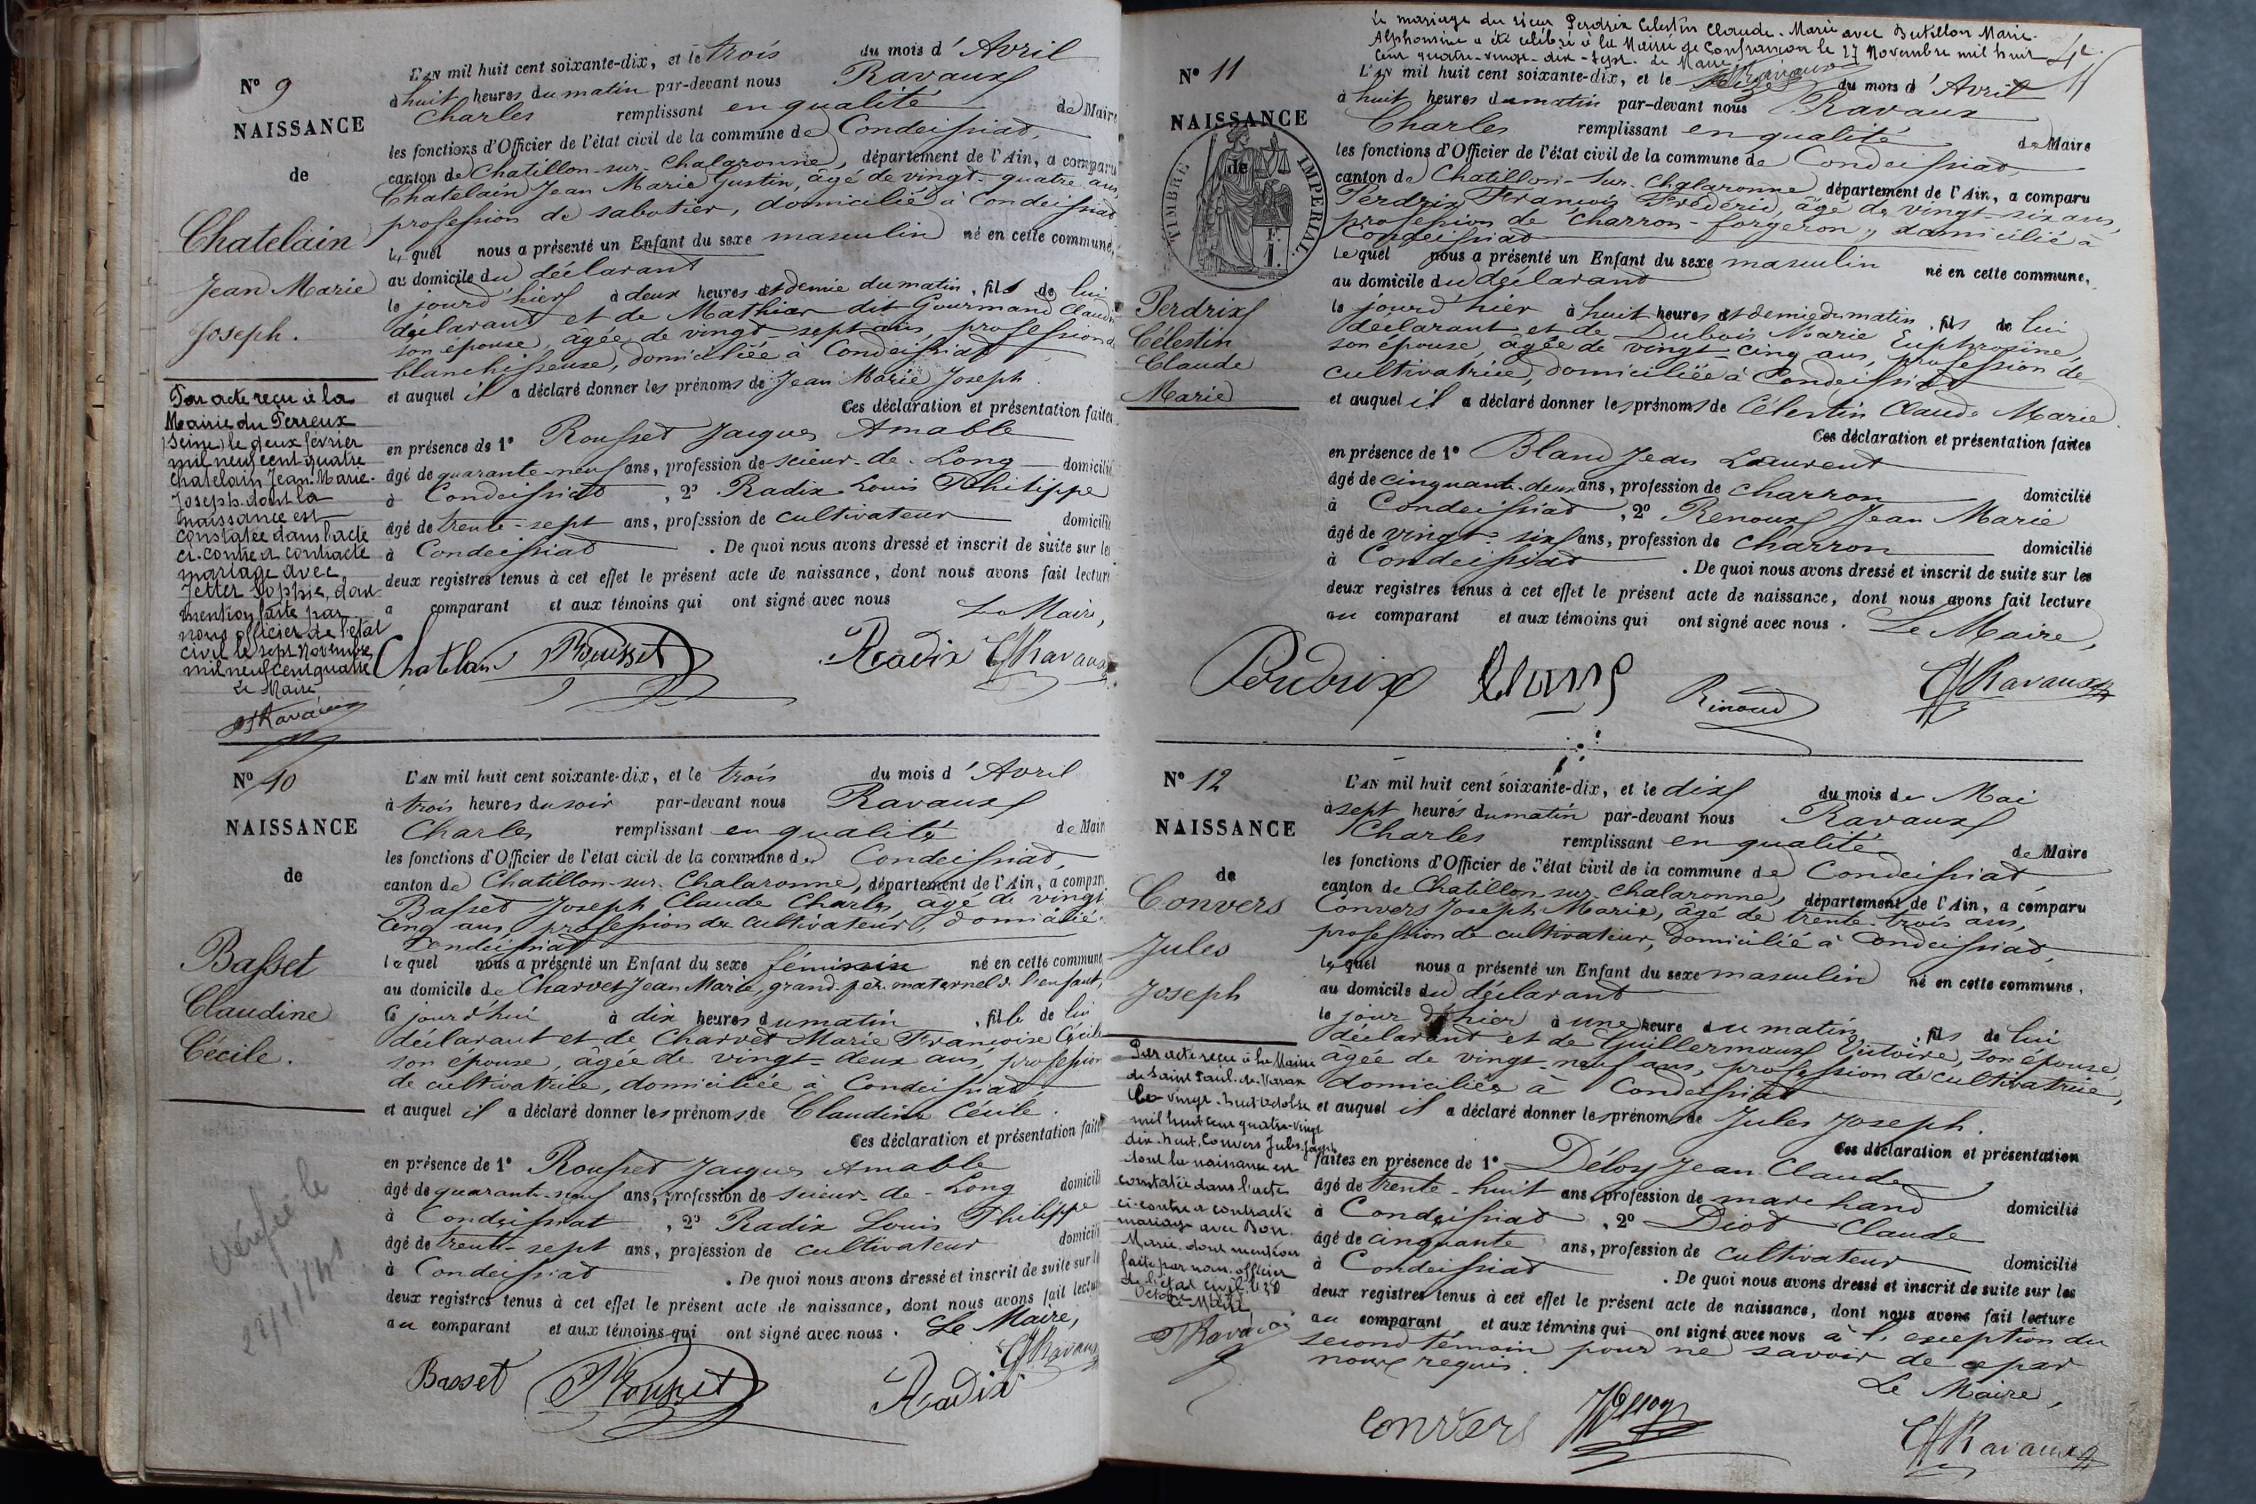 N° 9
NAISSANCE
de
Chatelain
Jean Marie
Joseph.
Par acte reçu à la
Mairie du Perreux
(Seine) le deux février
mil neuf cent quatre
Chatelain Jean-Marie-
Joseph dont la
naissance est
constatée dans l'acte
ci-contre a contracté
mariage avec
Jetter Sophie, dont
mention faite par
nous officier de l'état
civil le sept Novembre
mil neuf cent quatre
Le Maire
Ravaux
L'AN mil huit cent soixante-dix, et le trois du mois d'Avril
à huit heures du matin par-devant nous Ravaux
Charles remplissant en qualité de Maire
les fonctions d'Officier de l'état civil de la commune de Condeissiat,
canton de Chatillon-sur-Chalaronne, département de l'Ain, a comparu
Chatelain Jean Marie Justin, âgé de vingt-quatre ans
profession de sabotier, domicilié à Condeissiat
lequel nous a présenté un Enfant du sexe masculin né en cette commune,
au domicile du déclarant
le jourd'hier à deux heures et demie du matin, fils de lui
déclarant et de Mathias dit Gourmand Claudine
son épouse, âgée de vingt-sept ans, profession de
blanchisseuse, domiciliée à Condeissiat
et auquel il a déclaré donner les prénoms de Jean Marie Joseph.
Ces déclaration et présentation faites
en présence de 1° Rousset Jacques Amable
âgé de quarante-neuf ans, profession de scieur-de-Long domicilié
à Condeissiat, 2° Radix Louis Philippe
âgé de trente-sept ans, profession de cultivateur domicilié
à Condeissiat. De quoi nous avons dressé et inscrit de suite sur les
deux registres tenus à cet effet le présent acte de naissance, dont nous avons fait lecture
a comparant et aux témoins qui ont signé avec nous
Le Maire,
Chatelain Rousset Radix Ravaux
N° 10
NAISSANCE
de
Basset
Claudine
Cécile.
Vérifié le
L'AN mil huit cent soixante-dix, et le trois du mois d'Avril
à trois heures du soir par-devant nous Ravaux
Charles remplissant en qualité de Maire
les fonctions d'Officier de l'état civil de la commune de Condeissiat,
canton de Chatillon-sur-Chalaronne, département de l'Ain, a comparu
Basset Joseph Claude Charles, âgé de vingt
cinq ans, profession de cultivateur, domicilié
Condeissiat
lequel nous a présenté un Enfant du sexe féminin né en cette commune,
au domicile de Charvet Jean Marie, grand-père maternel de l'enfant,
le jourd'hui à dix heures du matin, fille de lui
déclarant et de Charvet Marie Françoise Cécile
son épouse, âgée de vingt-deux ans, profession
de cultivatrice, domiciliée à Condeissiat,
et auquel il a déclaré donner les prénoms de Claudine Cécile.
Ces déclaration et présentation faites
en présence de 1° Rousset Jacques Amable
âgé de quarante-neuf ans, profession de scieur-de-Long domicilié
à Condeissiat, 2° Radix Louis Philippe
âgé de trente-sept ans, profession de cultivateur domicilié
à Condeissiat. De quoi nous avons dressé et inscrit de suite sur les
deux registres tenus à cet effet le présent acte de naissance, dont nous avons fait lecture
au comparant et aux témoins qui ont signé avec nous. Le Maire,
Ravaux
Basset Rousset Radix
Le mariage du sieur Perdrix Célestin Claude-Marie avec Butillon Marie-
Alphonsine a été célébré à la Mairie de Confrançon le 27 Novembre mil huit
cent quatre-vingt-dix-sept. Le Maire,
Ravaux
N° 11
NAISSANCE
de
TIMBRE IMPERIAL
1 F.
Perdrix
Célestin
Claude
Marie
L'AN mil huit cent soixante-dix, et le seize du mois d'Avril
à huit heures du matin par-devant nous Ravaux
Charles remplissant en qualité de Maire
les fonctions d'Officier de l'état civil de la commune de Condeissiat,
canton de Chatillon-sur-Chalaronne, département de l'Ain, a comparu
Perdrix François Frédéric, âgé de vingt-six ans,
profession de Charron-forgeron, domicilié à
Condeissiat
Lequel nous a présenté un Enfant du sexe masculin né en cette commune,
au domicile du déclarant
le jourd'hier à huit heures et demie du matin, fils de lui
déclarant et de Dubois Marie Euphrosine,
son épouse, âgée de vingt-cinq ans, profession de
cultivatrice, domiciliée à Condeissiat
et auquel il a déclaré donner les prénoms de Célestin Claude Marie
Ces déclaration et présentation faites
en présence de 1° Bland Jean Laurent
âgé de cinquante-deux ans, profession de charron domicilié
à Condeissiat, 2° Renoux Jean Marie
âgé de vingt-six ans, profession de charron domicilié
à Condeissiat. De quoi nous avons dressé et inscrit de suite sur les
deux registres tenus à cet effet le présent acte de naissance, dont nous avons fait lecture
au comparant et aux témoins qui ont signé avec nous. Le Maire,
Perdrix Renoud Ravaux
N° 12
NAISSANCE
de
Convers
Jules
Joseph
Par acte reçu à la Mairie
de Saint Paul-de-Varax
le vingt-huit octobre
mil huit cent quatre-vingt
dix-huit, Convers Jules Joseph
dont la naissance est
constatée dans l'acte
ci-contre a contracté
mariage avec Bon
Marie, dont mention
faite par nous officier
de l'état civil, le 30
Octobre
Le Maire
Ravaux
L'AN mil huit cent soixante-dix, et le dix du mois de Mai
à sept heures du matin par-devant nous Ravaux
Charles remplissant en qualité de Maire
les fonctions d'Officier de l'état civil de la commune de Condeissiat,
canton de Chatillon-sur-Chalaronne, département de l'Ain, a comparu
Convers Joseph Marie, âgé de trente-trois ans,
profession de cultivateur, domicilié à Condeissiat,
lequel nous a présenté un Enfant du sexe masculin né en cette commune,
au domicile du déclarant
le jour d'hier à une heure du matin, fils de lui
déclarant et de Guillermoux Victoire, son épouse,
âgée de vingt-neuf ans, profession de cultivatrice,
domiciliée à Condeissiat
et auquel il a déclaré donner les prénoms de Jules Joseph.
Ces déclaration et présentation
faites en présence de 1° Déloy Jean Claude,
âgé de trente-huit ans, profession de marchand domicilié
à Condeissiat, 2° Diot Claude
âgé de cinquante ans, profession de cultivateur domicilié
à Condeissiat. De quoi nous avons dressé et inscrit de suite sur les
deux registres tenus à cet effet le présent acte de naissance, dont nous avons fait lecture
au comparant et aux témoins qui ont signé avec nous à l'exception du
second témoin pour ne savoir de ce par
nous requis.
Le Maire,
Convers Déloy Ravaux